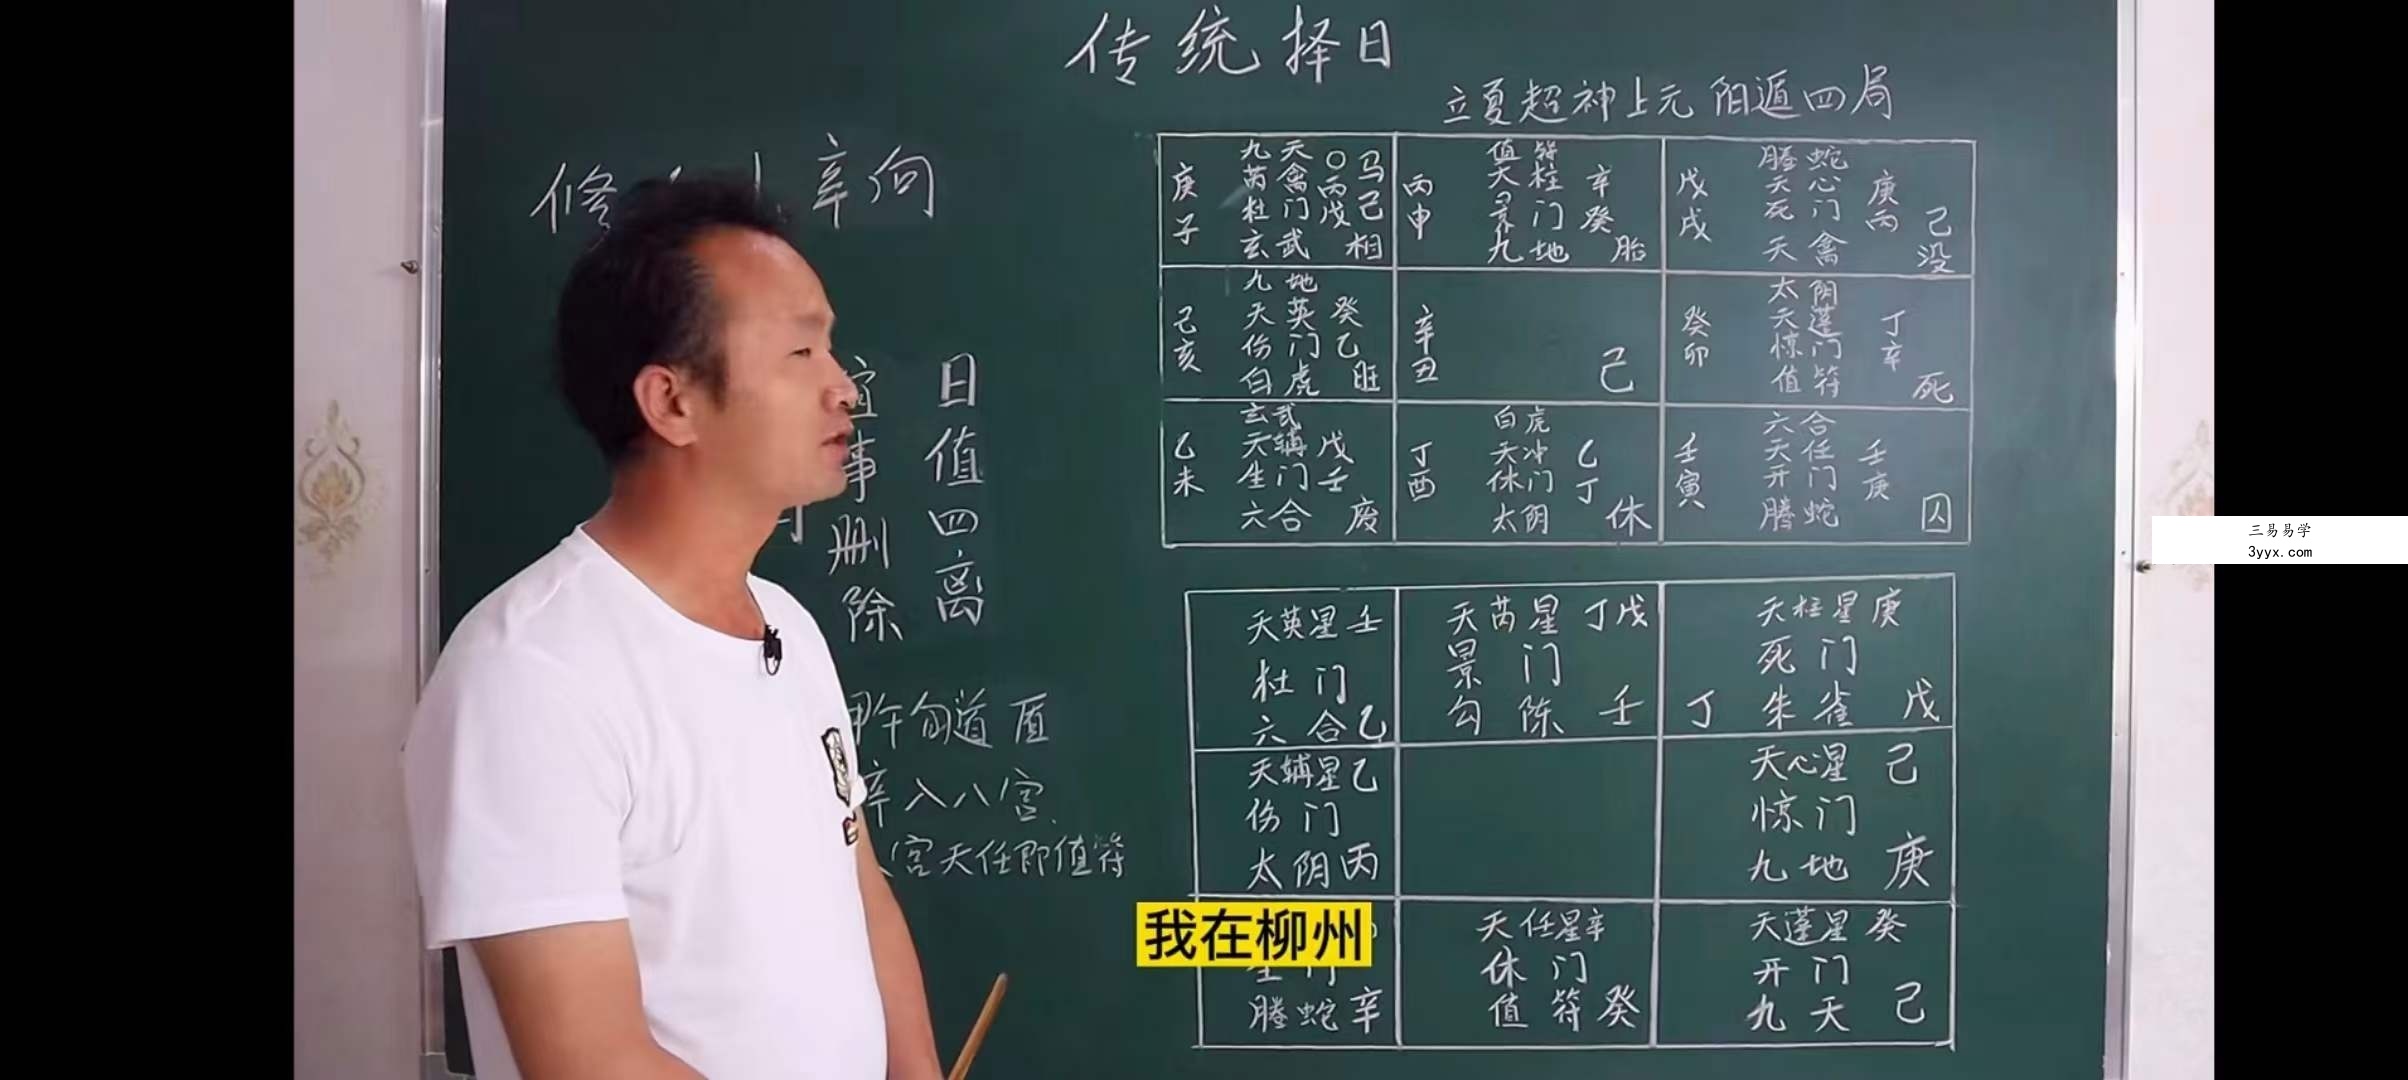 传统择日
立夏超神上元 阳遁四局
修
辛向
日值四离
宜事删除
甲午旬遁 盾
辛入八宫
宫天任即值符
庚子
九天 〇 马
芮禽 丙 己
杜门 戊
玄武 相
丙申
值符
天柱 辛
景门 癸
九地 胎
戊戌
螣蛇
天心 庚
死门 丙 己
天禽 没
己亥
九地
天英 癸
伤门 乙
白虎 旺
辛丑
己
癸卯
太阴
天蓬 丁
惊门 辛
值符 死
乙未
玄武
天辅 戊
生门 壬
六合 废
丁酉
白虎
天冲 乙
休门 丁
太阴 休
壬寅
六合
天任 壬
开门 庚
螣蛇 囚
天英星 壬
杜门
六合 乙
天芮星 丁戊
景门
勾陈 壬
天柱星 庚
死门
丁 朱雀 戊
天辅星 乙
伤门
太阴 丙
天心星 己
惊门
九地 庚
螣蛇 辛
天任星 辛
休门
值符 癸
天蓬星 癸
开门
九天 己
我在柳州
三易易学
3yyx.com